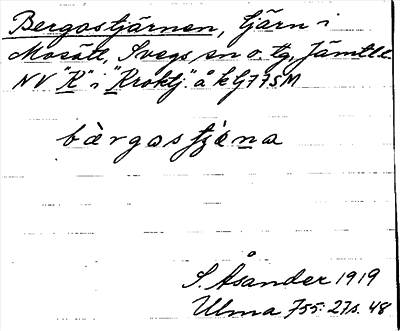 Bergostjärnen, tjärn i
Mosätt, Svegs sn o. tg, Jämtl l.
NV "K" i "Kroktj." å k G 77 SM
bàrgostjä̀na
S. Åsander 1919
Ulma 755: 27 s. 48